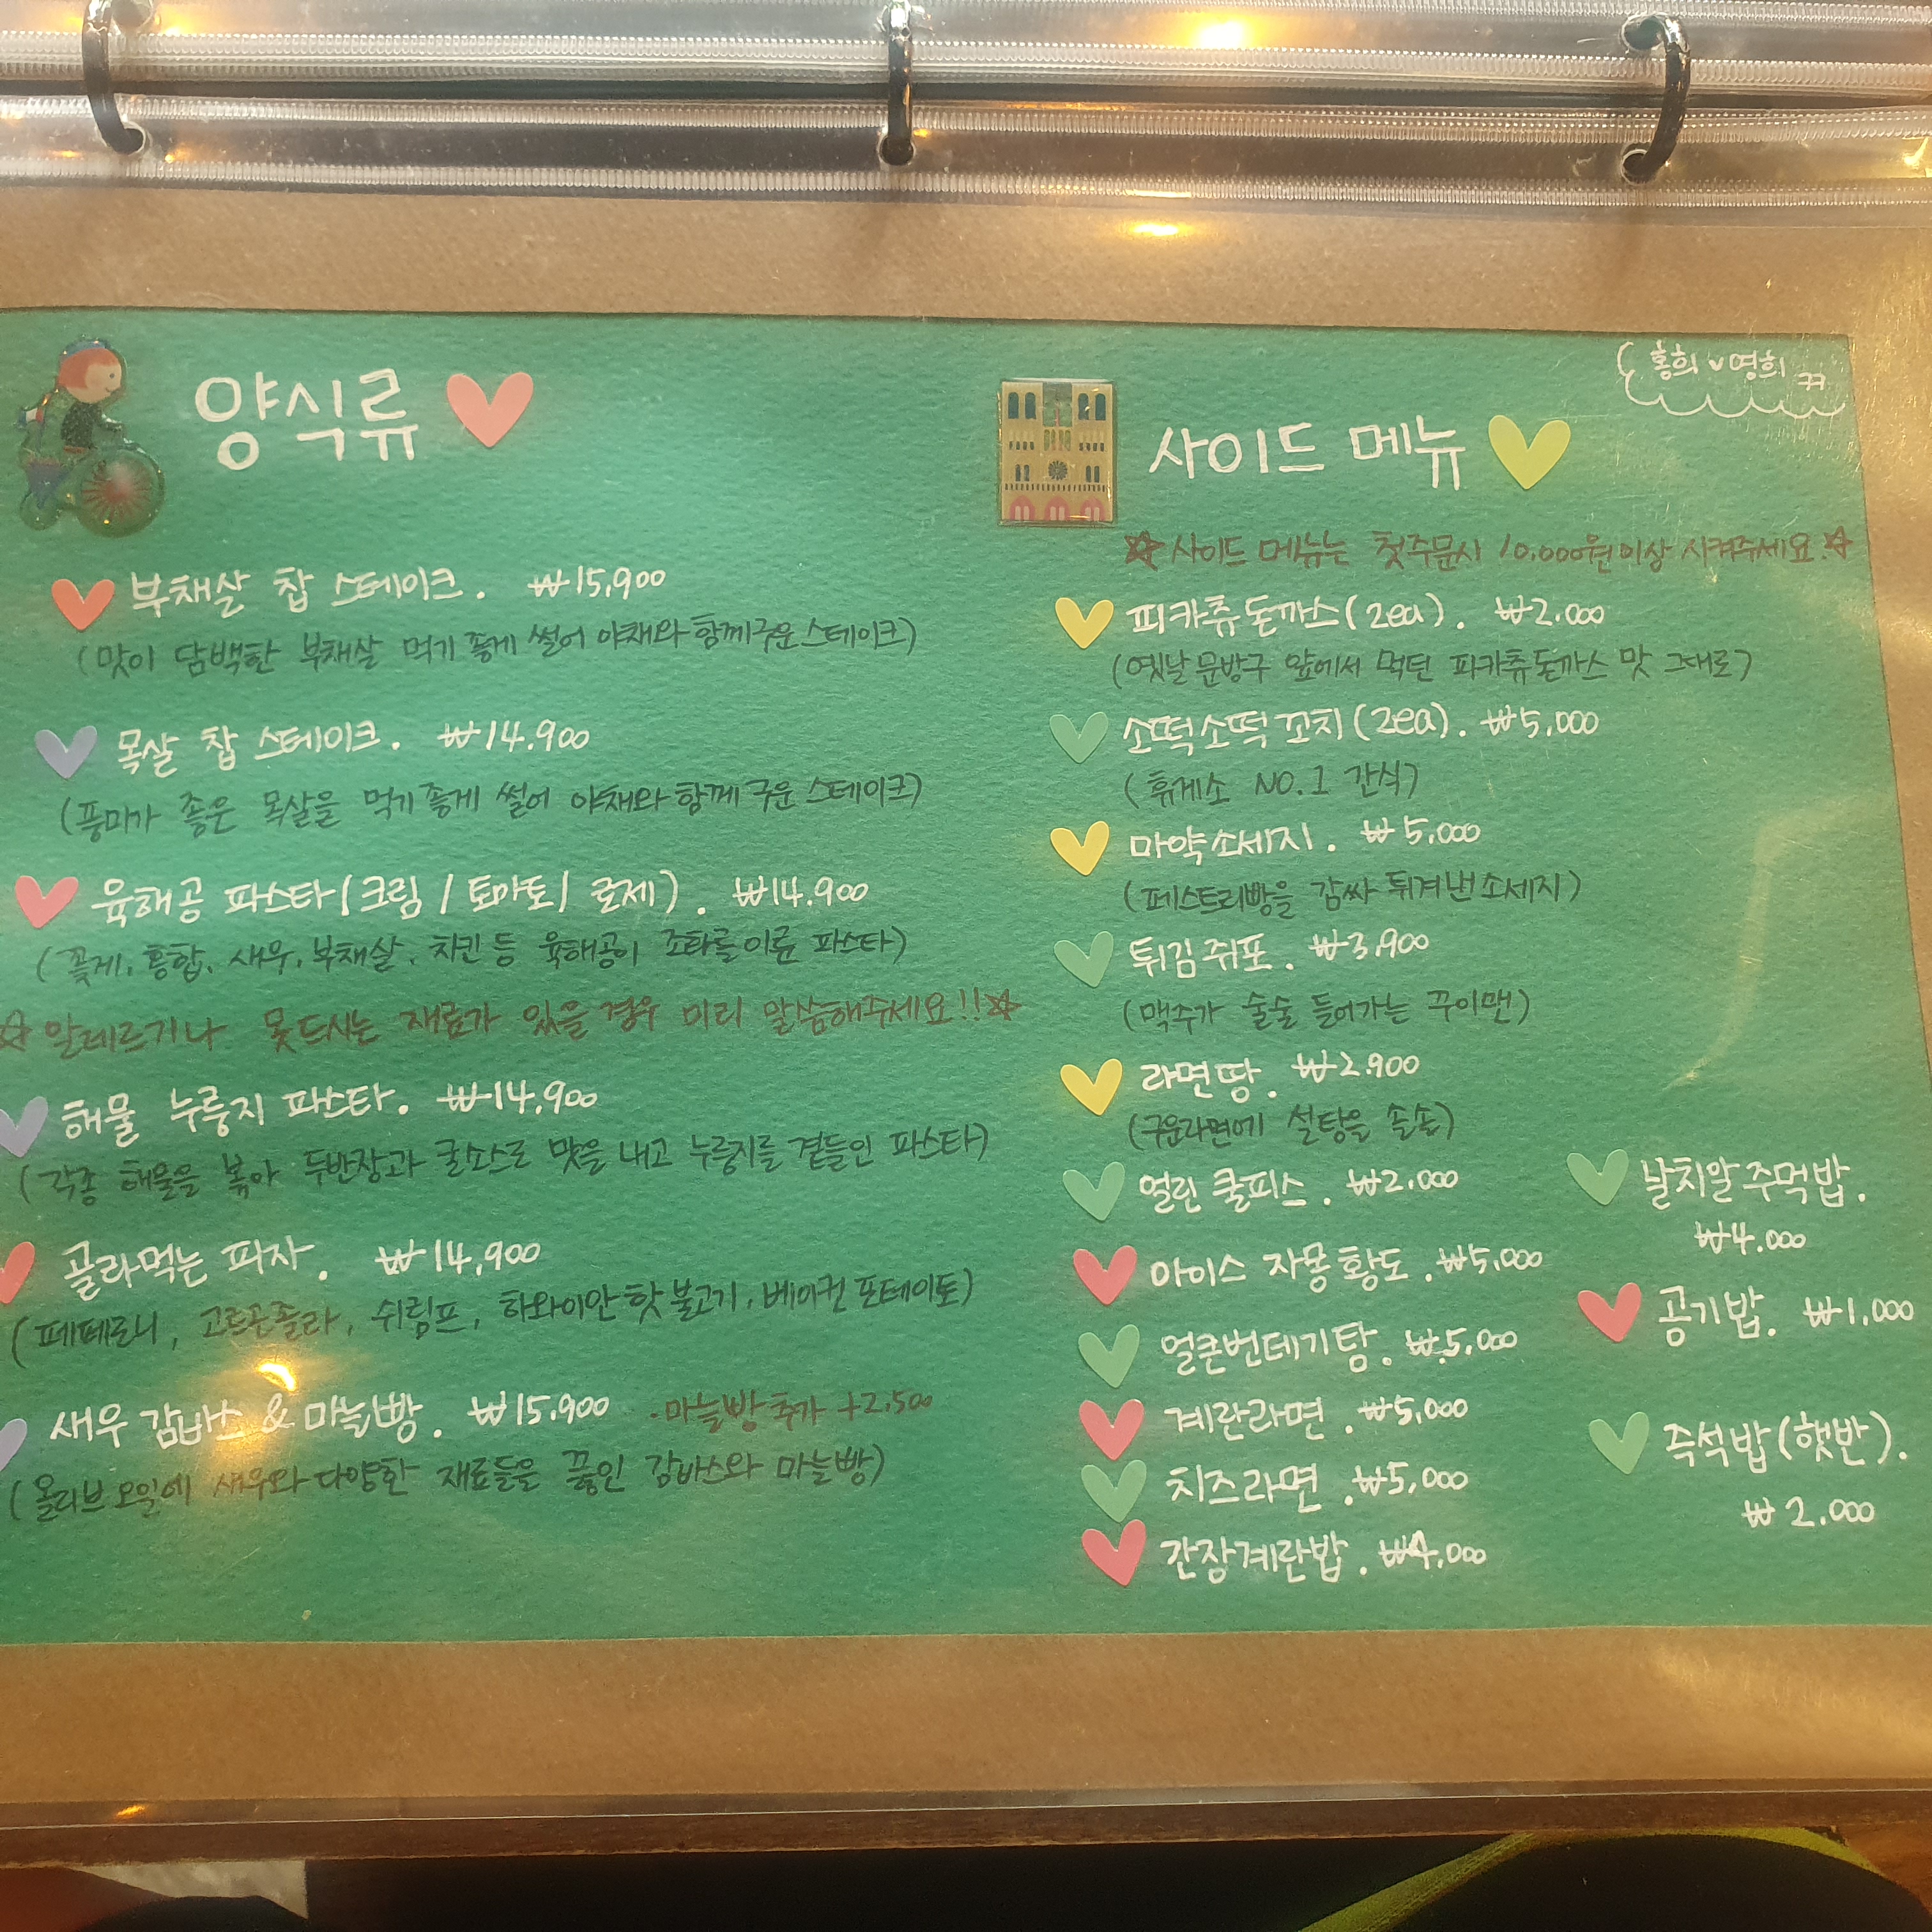 양식류
부채살 찹 스테이크. ₩15,900
(맛이 담백한 부채살 먹기 좋게 썰어 야채와 함께 구운 스테이크)
목살 찹 스테이크. ₩14.900
(풍미가 좋은 목살을 먹기 좋게 썰어 야채와 함께 구운 스테이크)
육해공 파스타(크림 / 토마토 / 로제). ₩14.900
(꽃게, 홍합, 새우, 부채살, 치킨 등 육해공이 조화를 이룬 파스타)
☆알레르기나 못드시는 재료가 있을 경우 미리 말씀해주세요!!☆
해물 누룽지 파스타. ₩14,900
(각종 해물을 볶아 두반장과 굴소스로 맛을 내고 누룽지를 곁들인 파스타)
골라먹는 피자. ₩14,900
(페페로니, 고르곤졸라, 쉬림프, 하와이안 핫 불고기, 베이컨 포테이토)
새우 감바스 & 마늘빵. ₩15,900 .마늘빵 추가 +2,500
(올리브 오일에 새우와 다양한 재료들을 끓인 감바스와 마늘빵)
홍희 v 영희 ㅋㅋ
사이드 메뉴
☆사이드 메뉴는 첫주문시 10.000원 이상 시켜주세요.☆
피카츄 돈까스(2ea). ₩2.000
(옛날 문방구 앞에서 먹던 피카츄 돈까스 맛 그대로)
소떡소떡 꼬치(2ea). ₩5,000
(휴게소 NO.1 간식)
마약소세지. ₩5,000
(페스트리빵을 감싸 튀겨낸 소세지)
튀김 쥐포. ₩3,900
(맥주가 술술 들어가는 꾸이맨)
라면땅. ₩2.900
(구운라면에 설탕을 솔솔)
얼린 쿨피스. ₩2.000
아이스 자몽 황도. ₩5,000
얼큰번데기탕. ₩5,000
계란라면. ₩5,000
치즈라면. ₩5,000
간장계란밥. ₩4,000
날치알 주먹밥.
₩4.000
공기밥. ₩1,000
즉석밥(햇반).
₩2.000